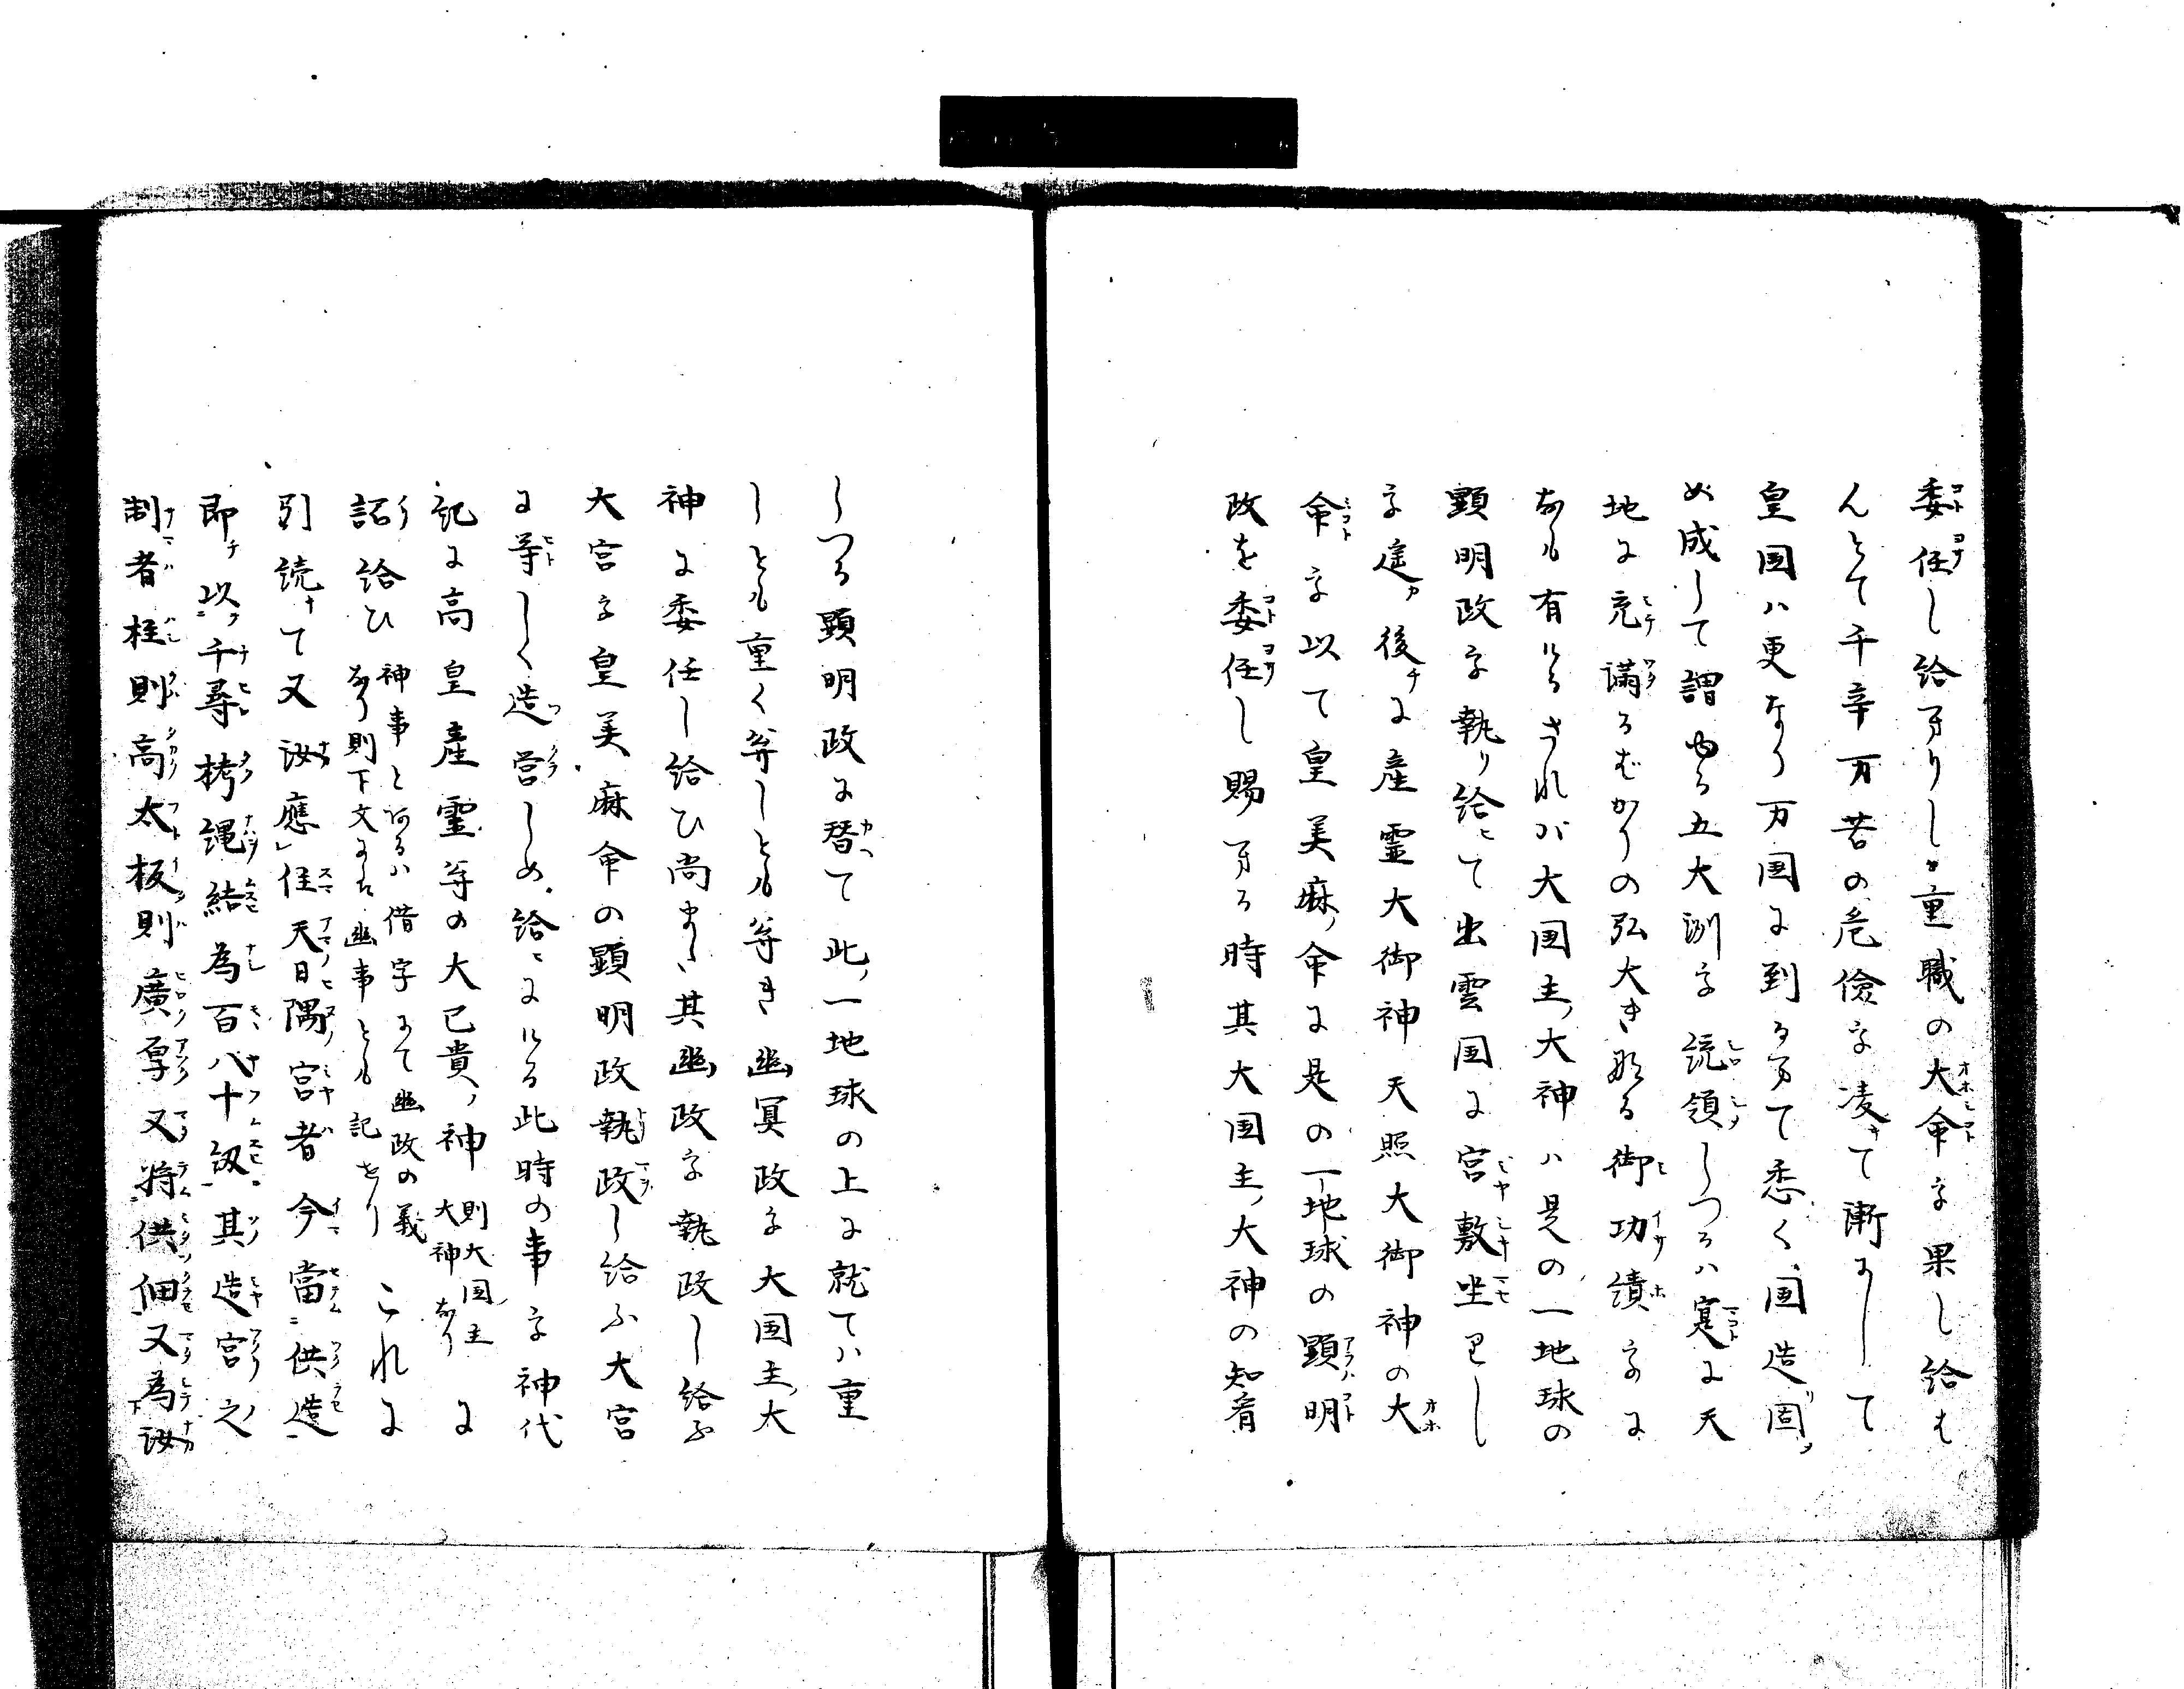 委任し給へりし重職の大命を果し給は
んとて千辛万苦の危険を凌て漸にして
皇国ハ更なり万国に到るまて悉く国造固
め成して謂ゆる五大洲を統領しつるハ寔に天
地に充満るむかりの弘大き那る御功績をのに
なも有けるされバ大国主大神ハ是の一地球の
顕明政を執り給ひて出雲国に宮敷坐ましし
を遂後に産霊大御神天照大御神の大
命を以て皇美麻命に是の一地球の顕明
政を委任し賜へる時其大国主大神の知看
しつる顕明政に替て此一地球の上に就てハ重
しとも重く等しとも等き幽冥政を大国主大
神に委任し給ひ尚また其幽政を執政し給ふ
大宮を皇美麻命の顕明政執政し給ふ大宮
に等しく造営しめ給ひにける此時の事を神代
紀に高皇産霊等の大已貴神 則大国主大神なり に
詔給ひ 神事と何るハ借字にて幽政の義なり則下文にも幽事とも記せり これに
引読て又汝應住天日隅宮者今當供造
即以千尋栲縄結為百八十紐其造宮之
制者柱則高太板則廣厚又将供佃又為汝